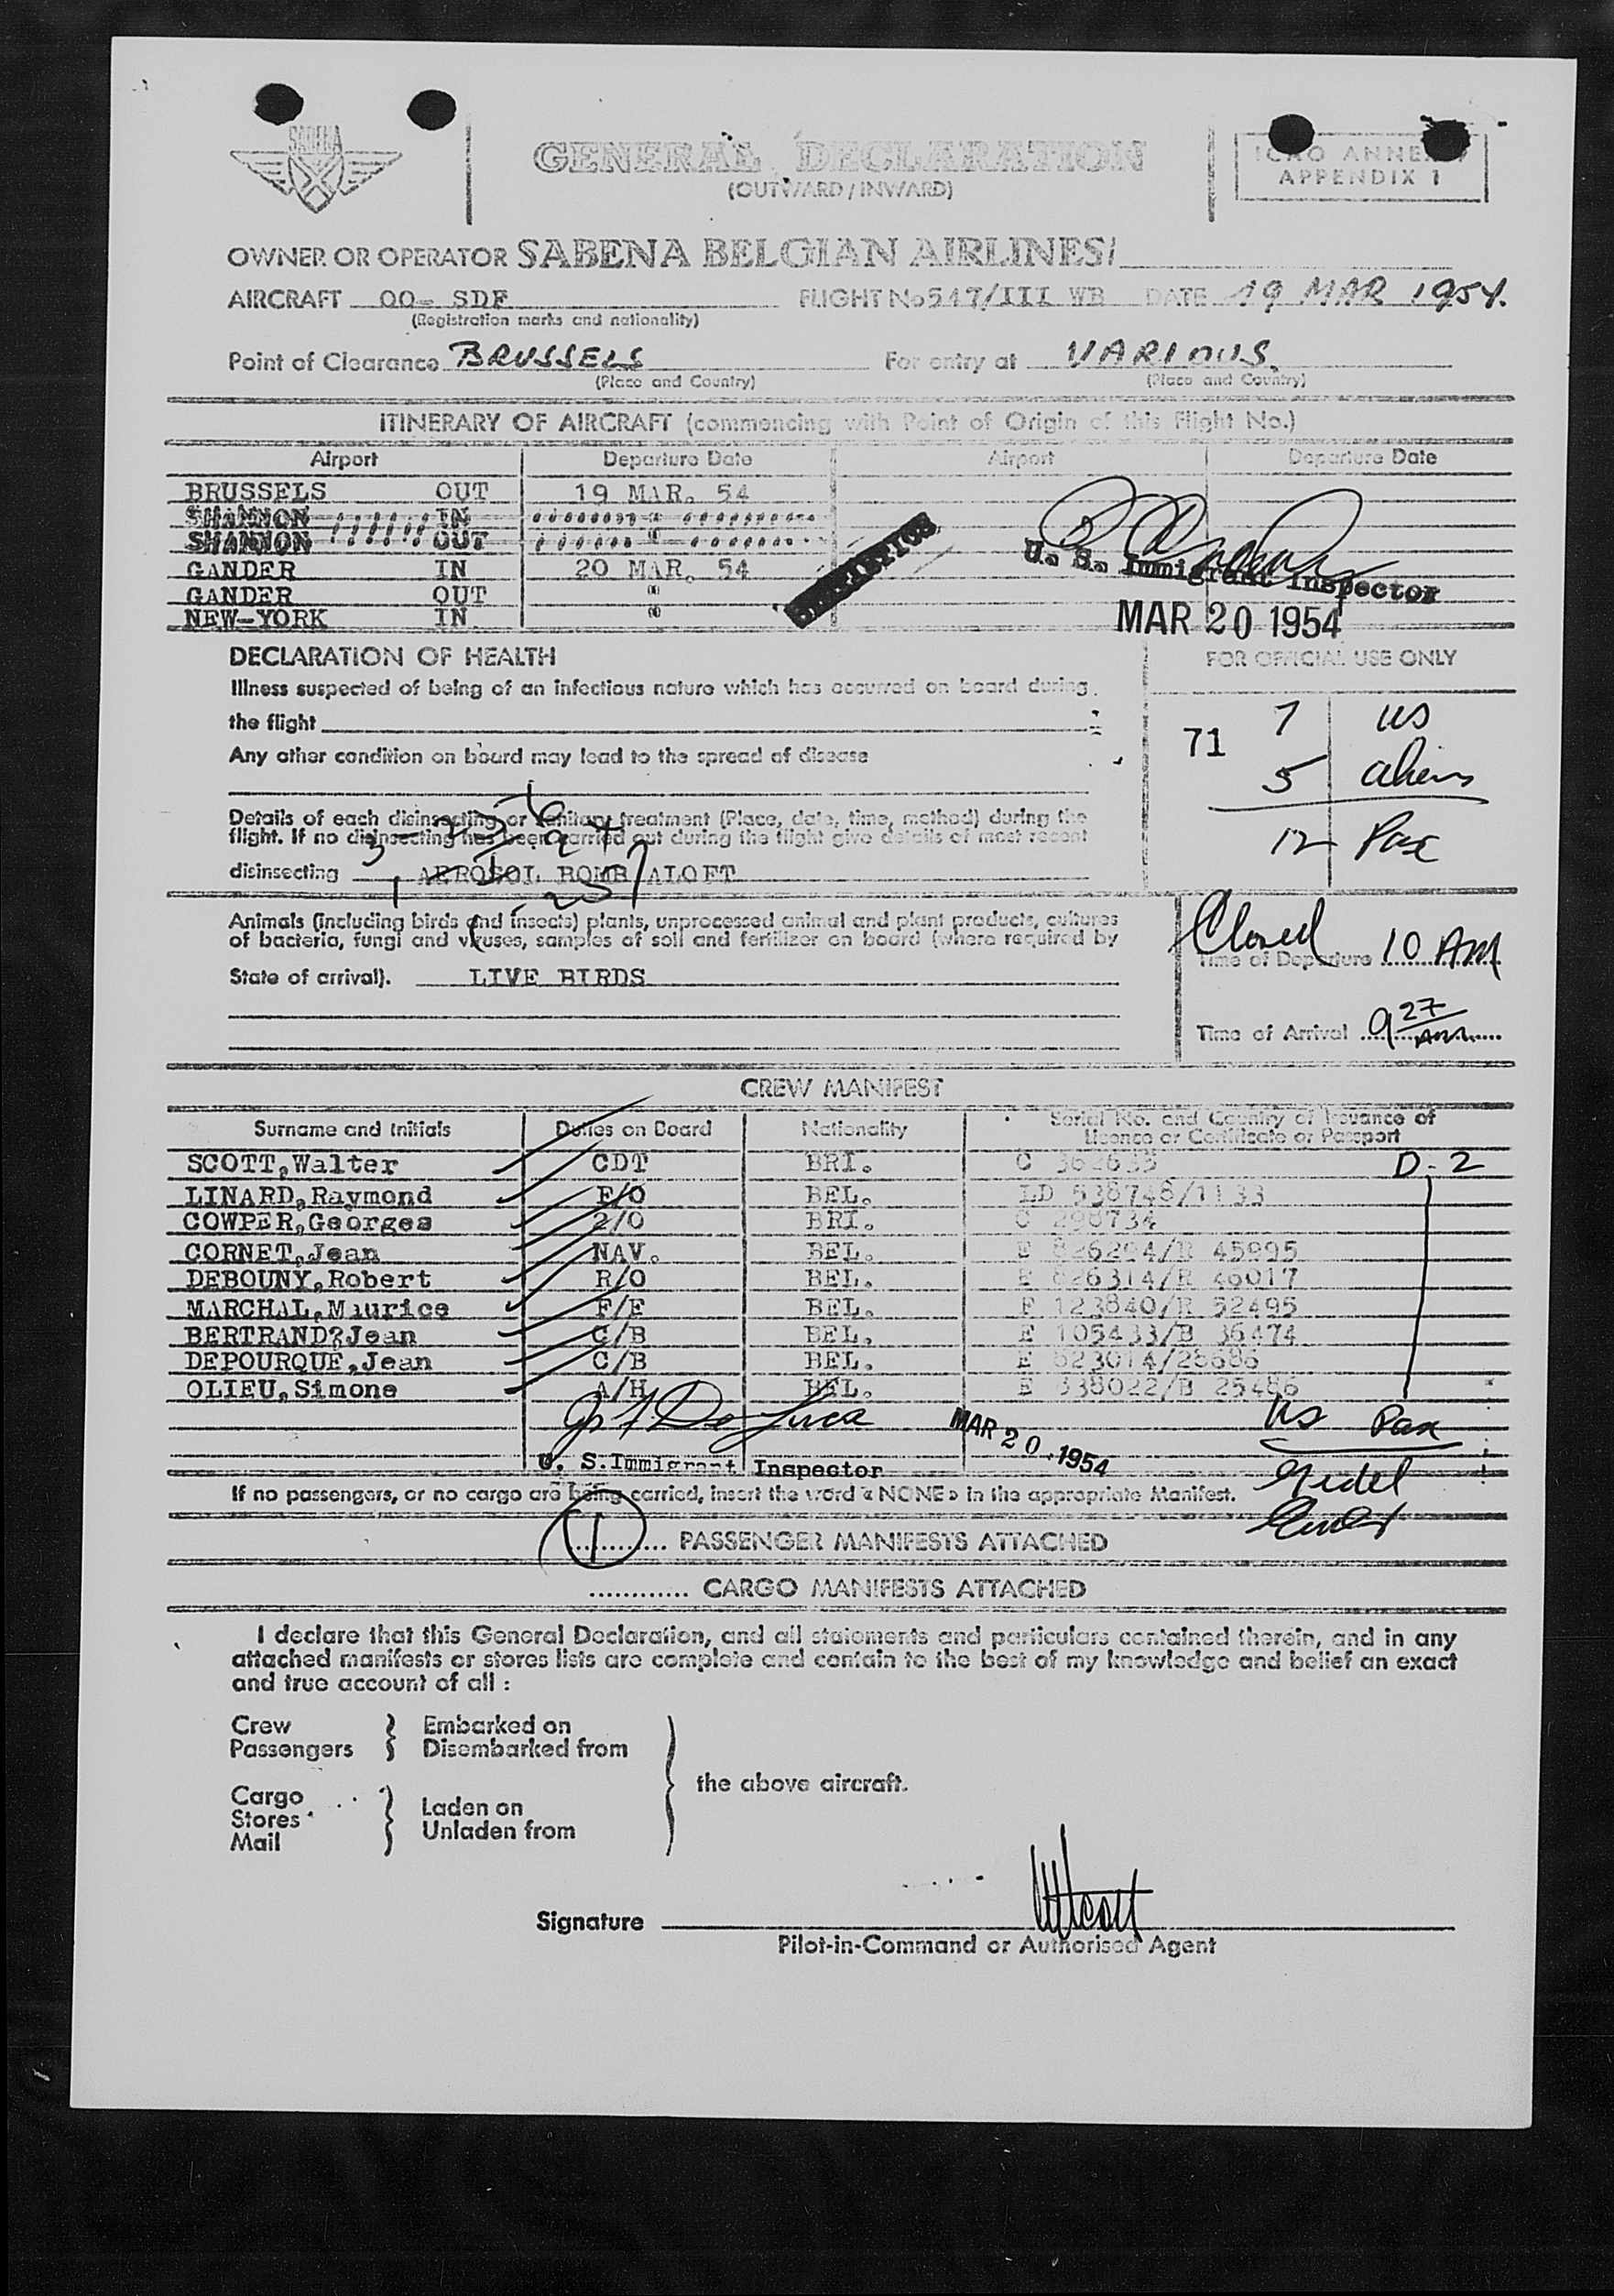 SABENA
GENERAL DECLARATION
(OUTWARD / INWARD)
ICAO ANNEX
APPENDIX 1
OWNER OR OPERATOR SABENA BELGIAN AIRLINES/
AIRCRAFT OO- SDF FLIGHT No 547/III WB DATE 19 MAR 1954.
(Registration marks and nationality)
Point of Clearance BRUSSELS For entry at VARIOUS.
(Place and Country) (Place and Country)
ITINERARY OF AIRCRAFT (commencing with Point of Origin of this Flight No.)
Airport Departure Date Airport Departure Date
BRUSSELS OUT 19 MAR. 54
SHANNON IN
SHANNON OUT
GANDER IN 20 MAR. 54
GANDER OUT "
NEW-YORK IN "
STATISTICS
U. S. Immigrant Inspector
MAR 20 1954
DECLARATION OF HEALTH
FOR OFFICIAL USE ONLY
Illness suspected of being of an infectious nature which has occurred on board during
the flight
Any other condition on board may lead to the spread of disease
71
7 US
5 aliens
12 Pax
Details of each disinsecting or sanitary treatment (Place, date, time, method) during the
flight. If no disinsecting has been carried out during the flight give details of most recent
disinsecting AEROSOL BOMB ALOFT
Animals (including birds and insects) plants, unprocessed animal and plant products, cultures
of bacteria, fungi and viruses, samples of soil and fertilizer on board (where required by
State of arrival). LIVE BIRDS
Closed
Time of Departure 10 AM
Time of Arrival 9 27 AM
CREW MANIFEST
Surname and Initials Duties on Board Nationality Serial No. and Country of Issuance of
Licence or Certificate or Passport
SCOTT,Walter CDT BRI. C 362633 D-2
LINARD,Raymond F/O BEL. LD 538748/1133
COWPER,Georges 2/O BRI. C 298734
CORNET,Jean NAV. BEL. E 826294/R 45995
DEBOUNY,Robert R/O BEL. E 826314/R 46017
MARCHAL,Maurice F/E BEL. F 123840/R 52495
BERTRAND?Jean C/B BEL. E 105433/B 36474
DEPOURQUE,Jean C/B BEL. E 823014/28686
OLIEU,Simone A/H BEL. E 338022/B 25486
MAR 20 1954
US Pax
U. S. Immigrant Inspector
If no passengers, or no cargo are being carried, insert the word « NONE » in the appropriate Manifest.
1 PASSENGER MANIFESTS ATTACHED
............ CARGO MANIFESTS ATTACHED
I declare that this General Declaration, and all statements and particulars contained therein, and in any
attached manifests or stores lists are complete and contain to the best of my knowledge and belief an exact
and true account of all :
Crew Embarked on
Passengers Disembarked from
the above aircraft.
Cargo
Stores Laden on
Mail Unladen from
Signature
Pilot-in-Command or Authorised Agent